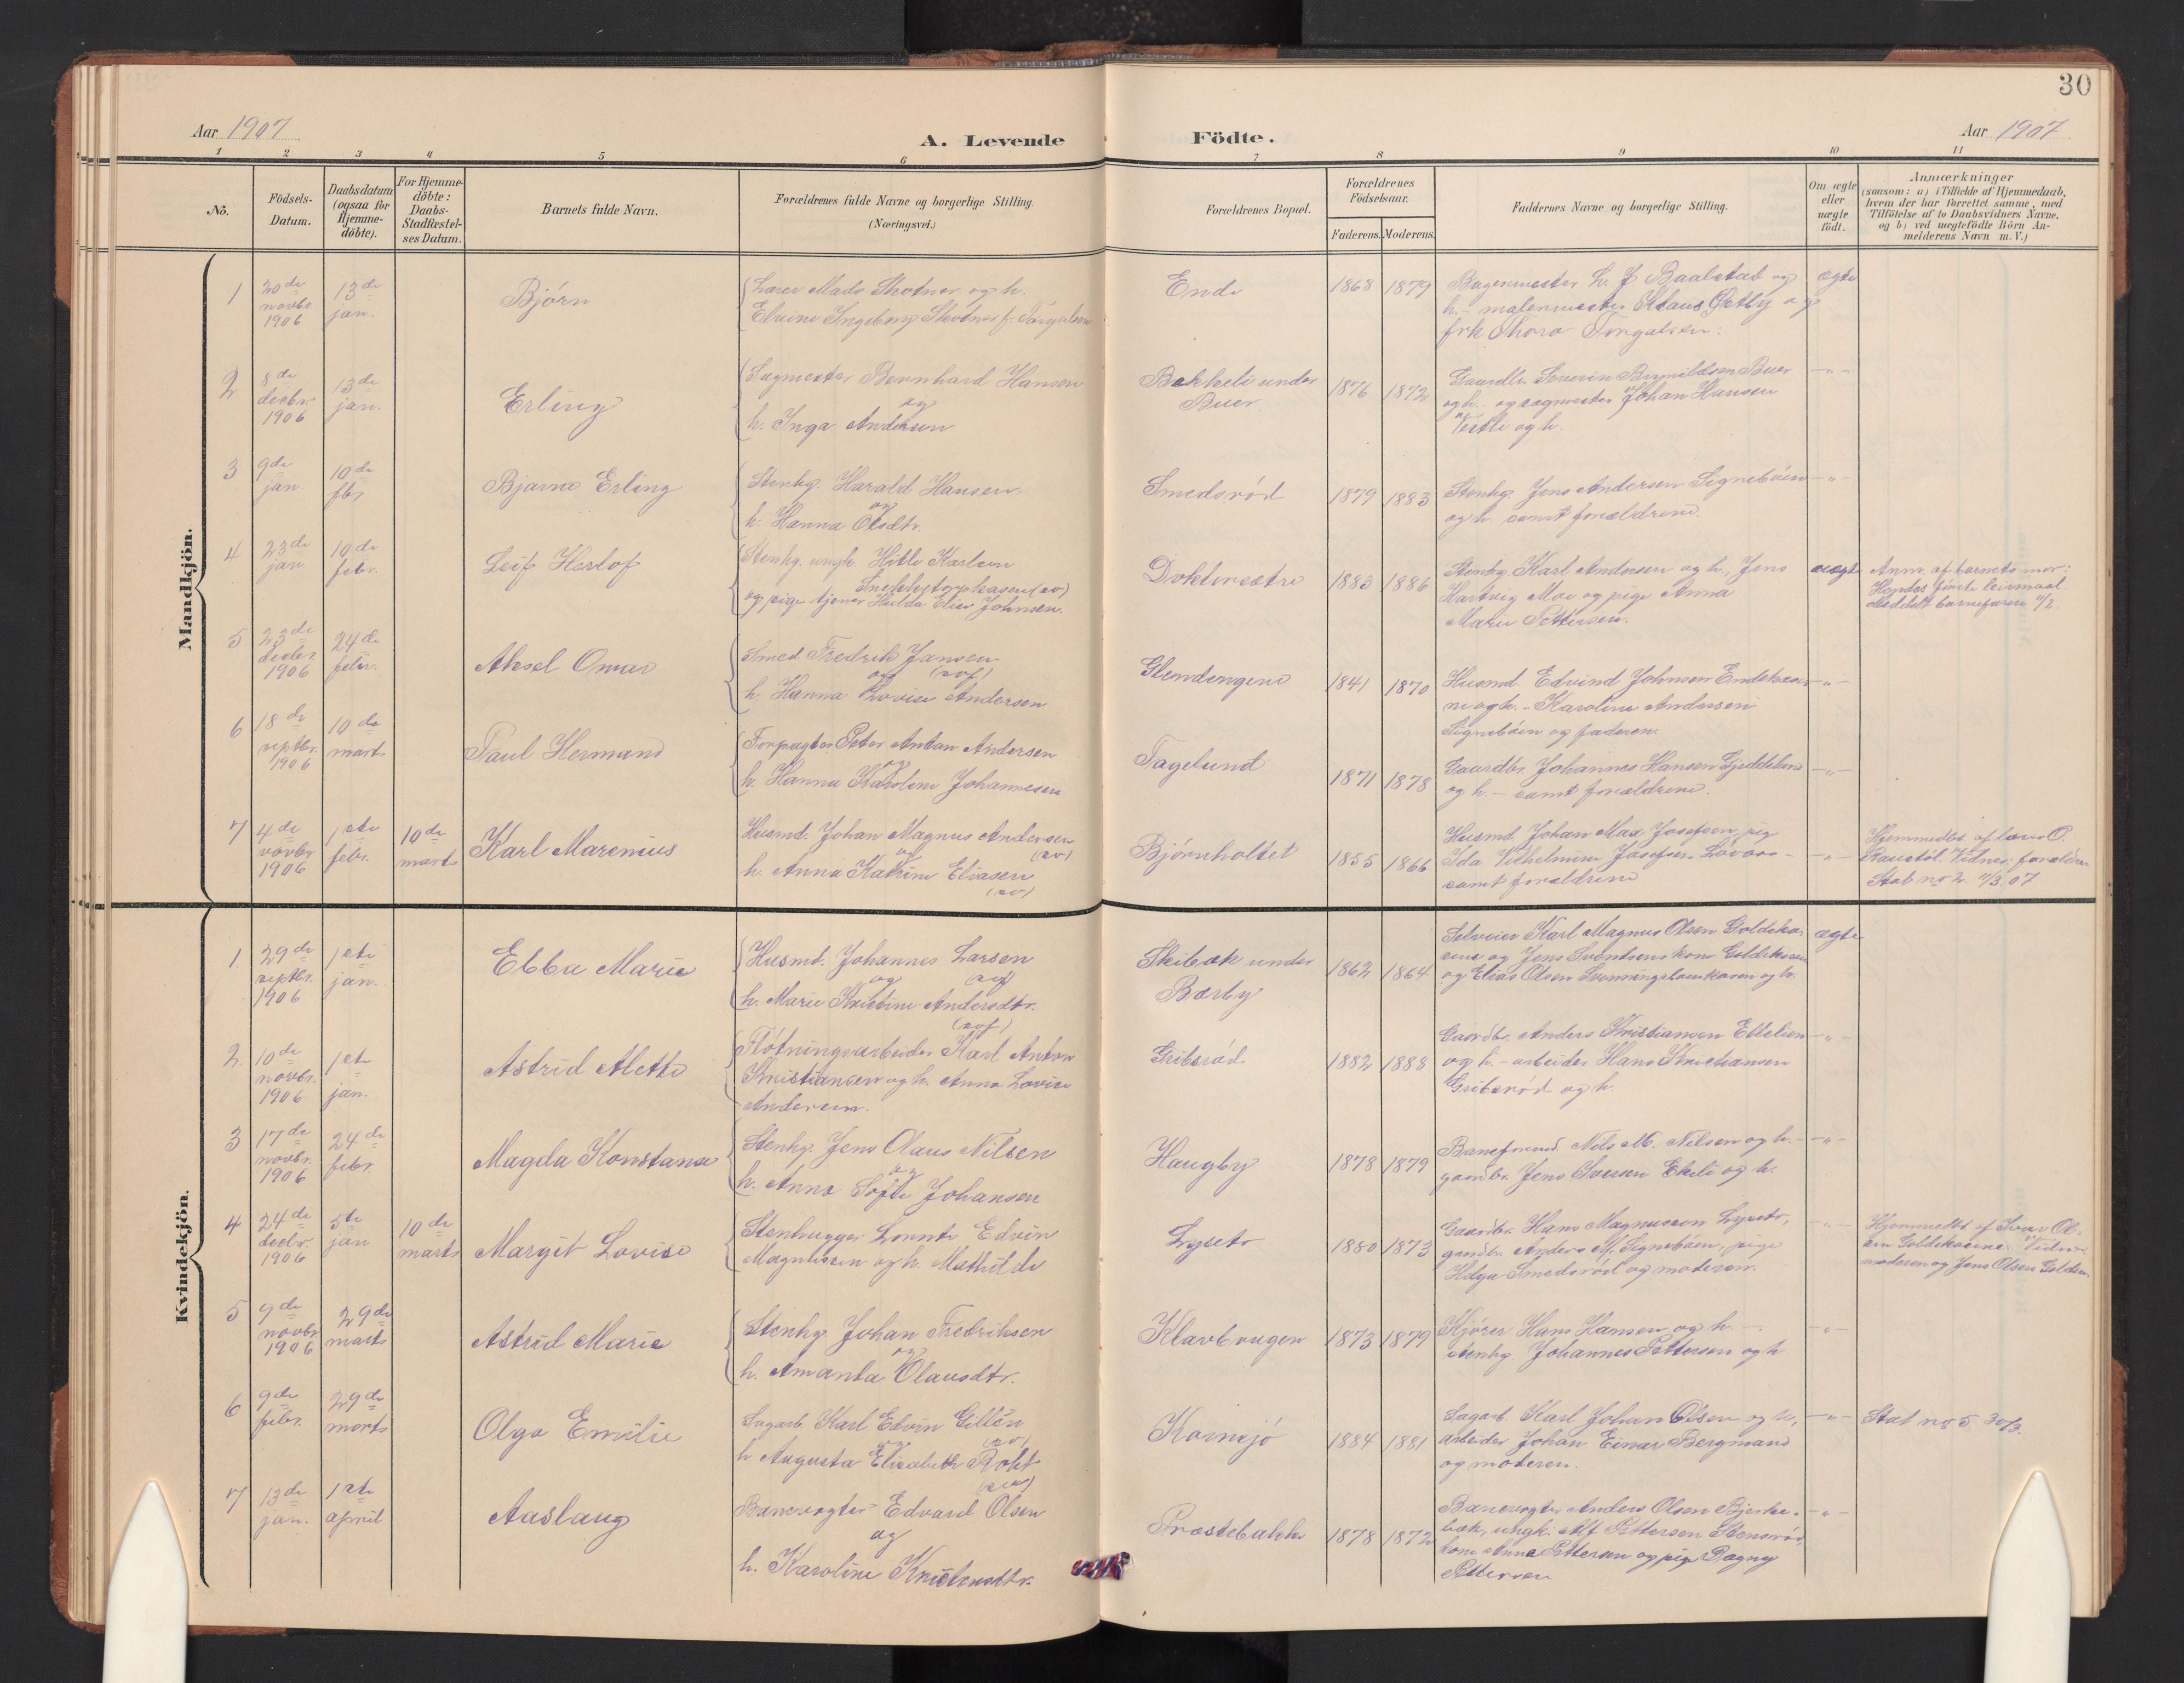 30
Aar 1907
A. Levende Födte.
Aar 1907
1 2 3 4 5 6 7 8 9 10 11
No.
Födsels-Datum.
Daabsdatum (ogsaa for Hjemme-döbte).
For Hjemme-döbte: Daabs-Stadfæstel-ses Datum.
Barnets fulde Navn.
Forældrenes fulde Navne og borgerlige Stilling.
(Næringsvei.)
Forældrenes Bopæl.
Forældrenes Födselsaar.
Faderens. Moderens.
Faddernes Navne og borgerlige Stilling.
Om ægte eller uægte födt.
Anmærkninger
(saasom: a) i Tilfælde af Hjemmedaab,
hvem der har forrettet samme, med
Tilföielse af to Daabsvidners Navne,
og b) ved uægtefödte Börn An-
melderens Navn m. V.)
Mandkjön.
1 20de novbr. 1906 13de jan. Bjørn
Lærer Mads Skotner og h.
Elvine Ingeborg Skotnes f.
Ende 1868 1879
Bagermester L. J. Baalstad og
h. - malermester Klaus Sætby og
frk Thora Torgalsen.
ægte
2 8de decbr. 1906 13de jan. Erling
Sagmester Bernhard Hansen
og
h. Inga Andersen
Bekkeli under
Buer
1876 1872
Gaardbr. Severin Brynildsen Buer
og h. - og sagmester Johan Hansen
Vestli og h.
-"-
3 9de jan. 10de fbr. Bjarne Erling
Stenhg. Harald Hansen
og
h. Hanna Olsdtr.
Smedsrød 1879 1883
Stenhg. Jens Andersen Signebøen
og h. samt forældrene.
-"-
4 23de jan. 10de febr. Leif Herlof
Stenhg. ungk. Hitle Karlsen
Snekkstorpkasen (sv)
og pige tjener Hulda Elise Johnsen.
Doktersætre 1883 1886
Stenhg. Karl Andersen og h., Jens
Hartvig Moe og pige Anna
Marie Pettersen.
uægte
Anm. af barnets mor:
Hendes første leiermaal
Meddelt barnefaren 11/2.
5 23de decbr. 1906 24de febr. Aksel Omar
Smed. Fredrik Jansen
og (svf)
h. Hanna Lovise Andersen
Glendengene 1841 1870
Husmd. Edvind Johnsen Endekasen
ne og h. - Karoline Andersen
Signebøen og faderen.
-"-
6 18de septbr. 1906 10de marts Paul Hermand
Forpagter Peter Anton Andersen
og
h. Hanna Karoline Johannesen
Fagelund 1871 1878
Gaardbr. Johannes Hansen Gjeddelund
og h. - samt forældrene.
-"-
7 4de novbr 1906 1ste febr. 10de marts Karl Marenius
Husmd. Johan Magnus Andersen
og (sv)
h. Anna Katrine Eliasen
(sv)
Bjørnholtet 1855 1866
Husmd. Johan Max Josefsen, pig
Ida Vilhelmine Josefsen Løvaas -
samt forældrene
-"-
Hjemmedbt. af lærer O.
Raustöl. Vidner: forældrene
Stat no 2 11/3 07
Kvindekjön.
1 29de septbr. 1906 1ste jan. Ebba Marie
Husmd. Johannes Larsen
og (svf)
h. Marie Kristine Andersdtr.
(svf)
Skibæk under
Bærby
1862 1864
Selveier Karl Magnus Olsen Goldeka-
sene og Jens Svendsens kone Goldekasen
og Elias Olsen Svenningslunkasen og h.
ægte
2 10de novbr. 1906 1ste jan. Astrid Alette
Fløtningsarbeider Karl Anton
Kristiansen og h. Anna Lovise
Andersen.
Gribsrød 1882 1888
Gaardbr. Anders Kristiansen Ellelien
og h. - arbeider Hans Kristiansen
Gribsrød og h.
-"-
3 17de novbr. 1906 24de febr. Magda Konstanse
Stenhg. Jens Olaus Nilsen
og
h. Anna Sofie Johansen
Haugby 1878 1879
Baneformd. Nils M. Nilsen og h. -
gaardbr. Jens Iversen Ekeli og h.
-"-
4 24de decbr. 1906 5te jan 10de marts Margit Lovise
Stenhugger Lorents Edvin
Magnussen og h. Mathilde
Lyseto 1880 1873
Gaardbr. Hans Magnussen Lyseto,
gaardbr. Anders M. Signebøen, pige
Helga Smedsrød og moderen.
-"-
Hjemmedbt. af Iver Ol-
sen Goldekasene. Vidner
moderen og Jens Olsen Golden
5 9de novbr 1906 29de marts Astrid Marie
Stenhg. Johan Fredriksen
og
h. Amanda Olausdtr.
Klavbraugen 1873 1879
Kjører Hans Hansen og h. -
stenhg. Johannes Pettersen og h
-"-
6 9de febr. 29de marts Olga Emilie
Sagarb. Karl Edvin Gillén
og (sv)
h Augusta Elisabeth Rokt
(sv)
Kornsjø 1884 1881
Sagarb. Karl Johan Olsen og h.,
arbeider Johan Einar Bergmand
og moderen.
-"-
Stat no 5 30/3.
7 13de jan. 1ste april Aaslaug
Banevogter Edvard Olsen
og
h. Karoline Kristensdtr.
Præstebakke 1878 1872
Banevogter Anders Olsen Bjerke-
bæk, ungk. Alf Pettersen Stensrød,
kone Anna Pettersen og pige Dagny
Pettersen
-"-